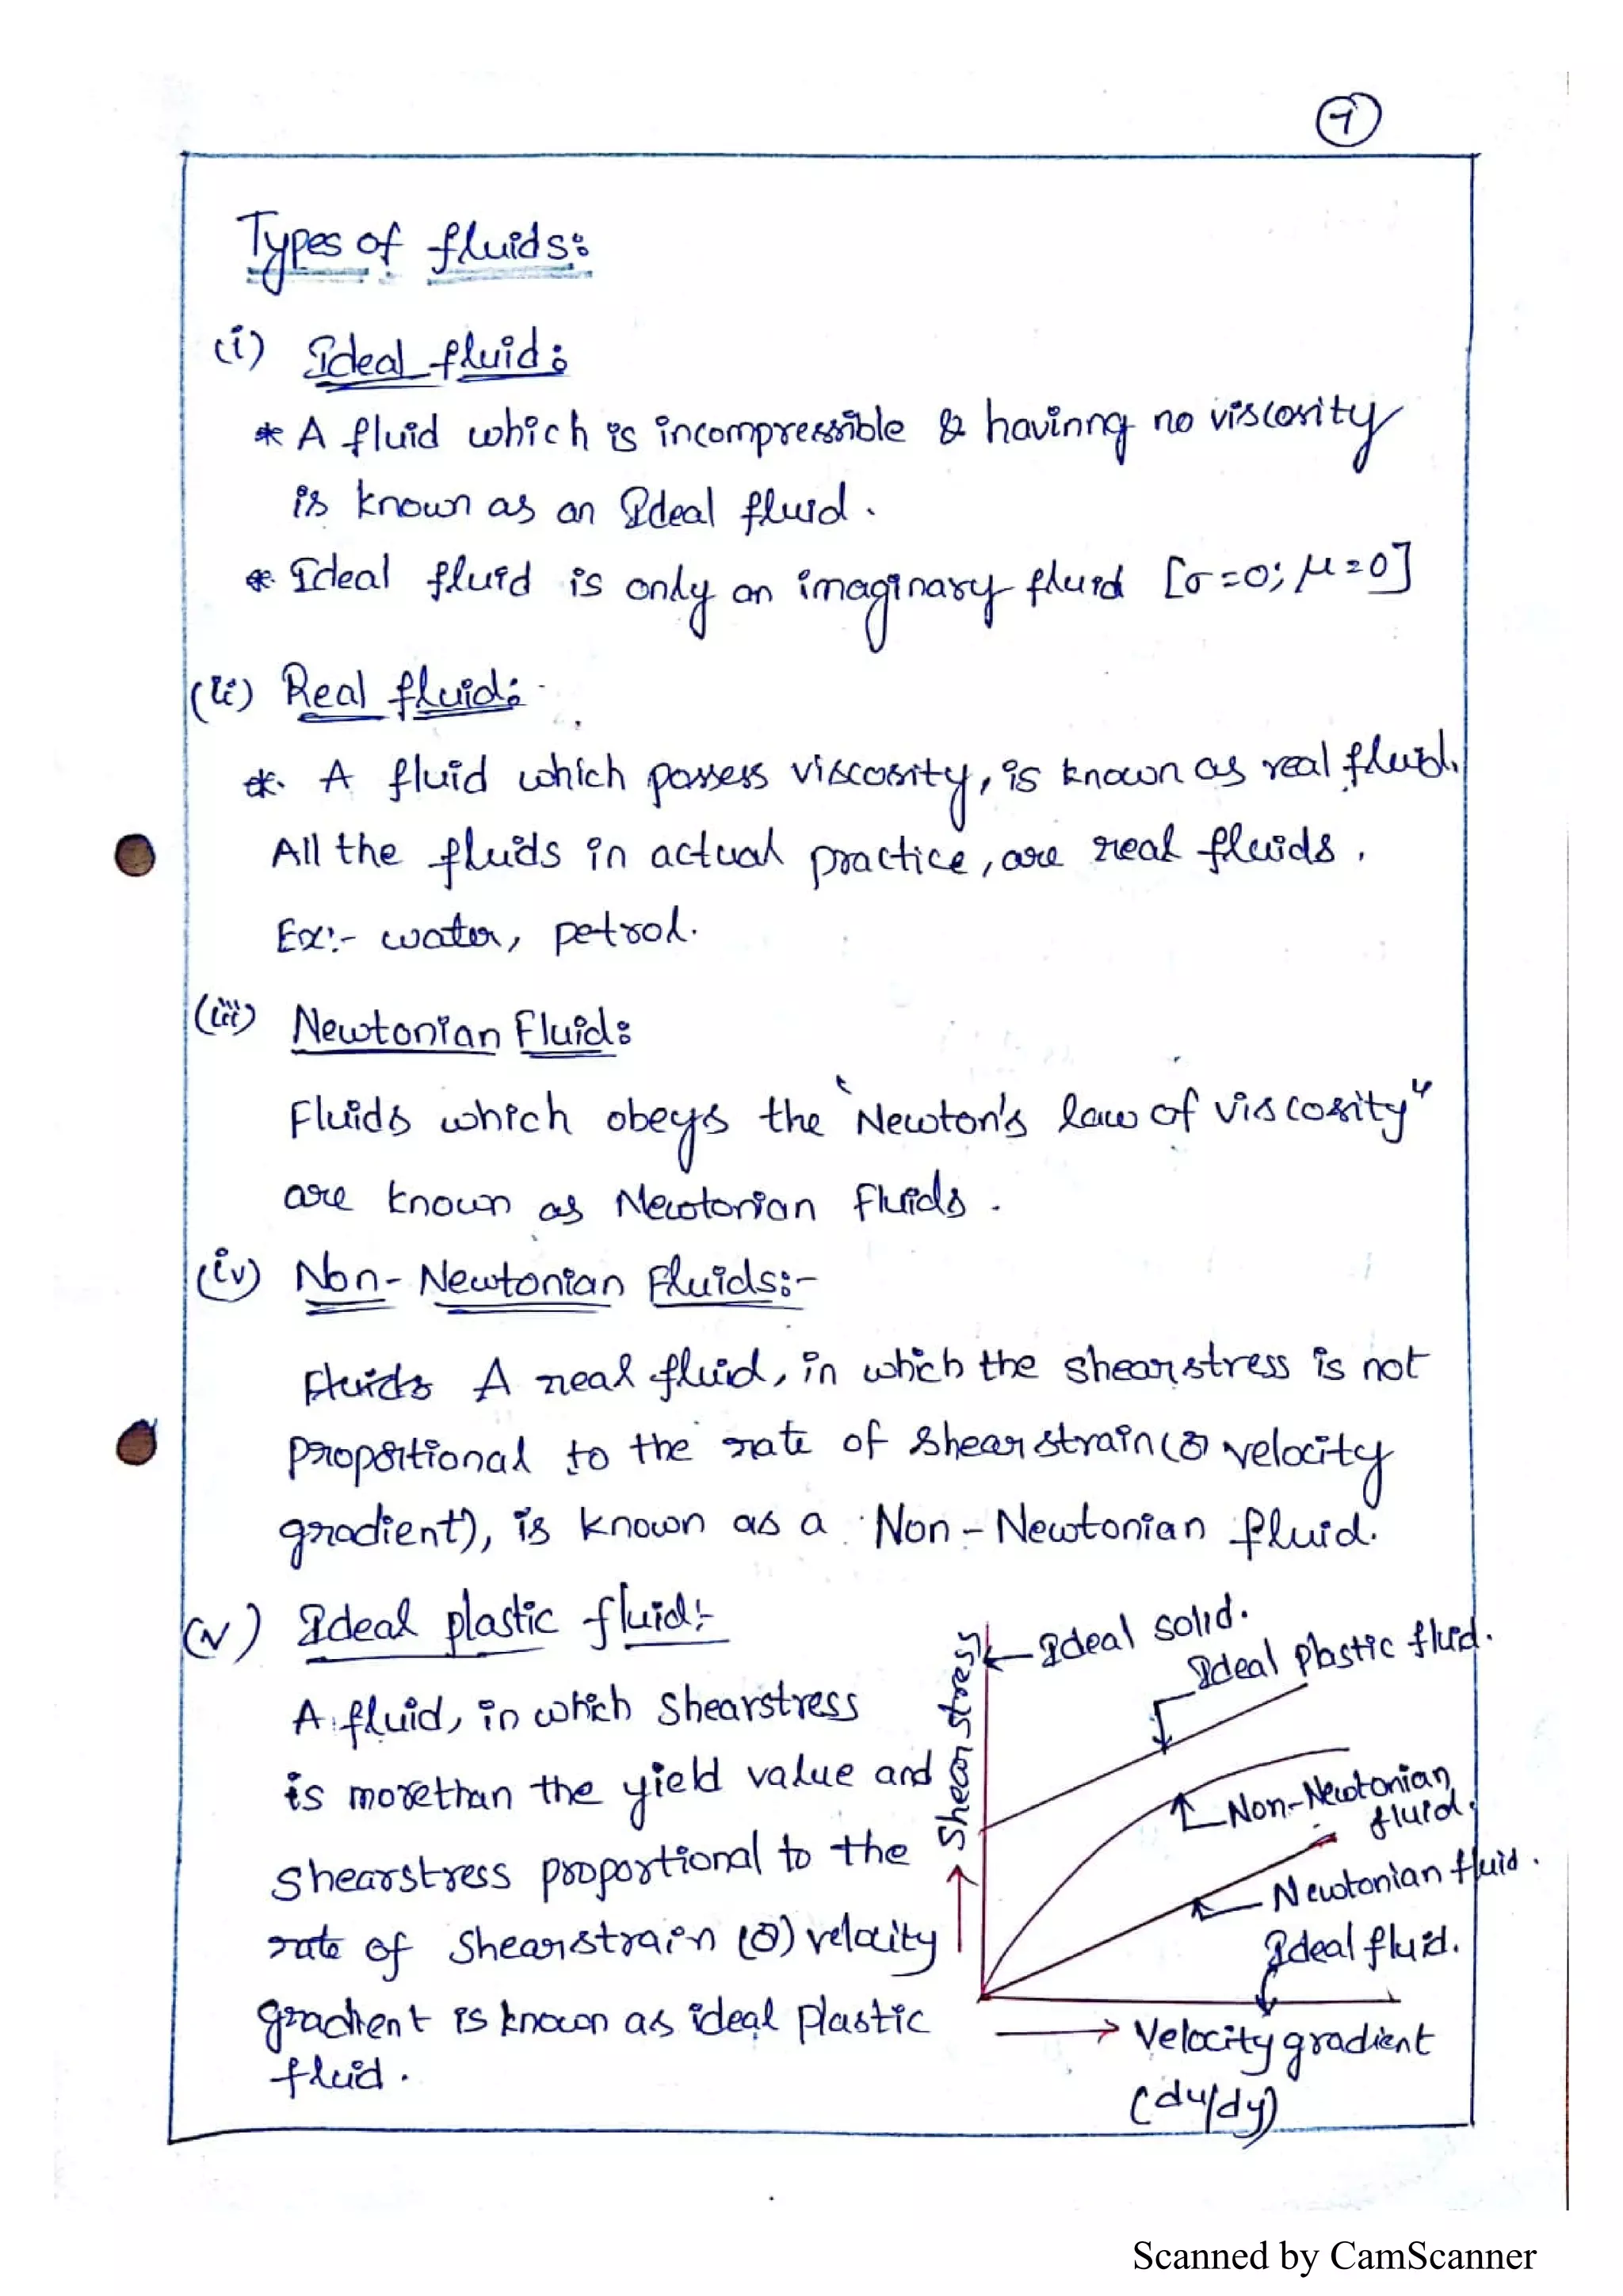 7
Types of fluids:
(i) Ideal fluid:
* A fluid which is incompressible & havinng no viscosity
is known as an Ideal fluid.
* Ideal fluid is only an imaginary fluid [σ=0; μ=0]
(ii) Real fluid:
*. A fluid which possess viscosity, is known as real fluid.
All the fluids in actual practice, are real fluids.
Ex:- water, petrol.
(iii) Newtonian Fluid:
Fluids which obeys the "Newton's law of viscosity"
are known as Newtonian Fluids.
(iv) Non-Newtonian Fluids:-
Fluids A real fluid, in which the shearstress is not
proportional to the rate of shear strain (or velocity
gradient), is known as a Non-Newtonian fluid.
(v) Ideal plastic fluid:-
A fluid, in which shearstress
is morethan the yield value and
shearstress proportional to the
rate of shearstrain (or) velocity
gradient is known as ideal plastic
fluid.
Shear stress
Ideal solid.
Ideal plastic fluid.
Non-Newtonian
fluid.
Newtonian fluid.
Ideal fluid.
Velocity gradient
(du/dy)
Scanned by CamScanner